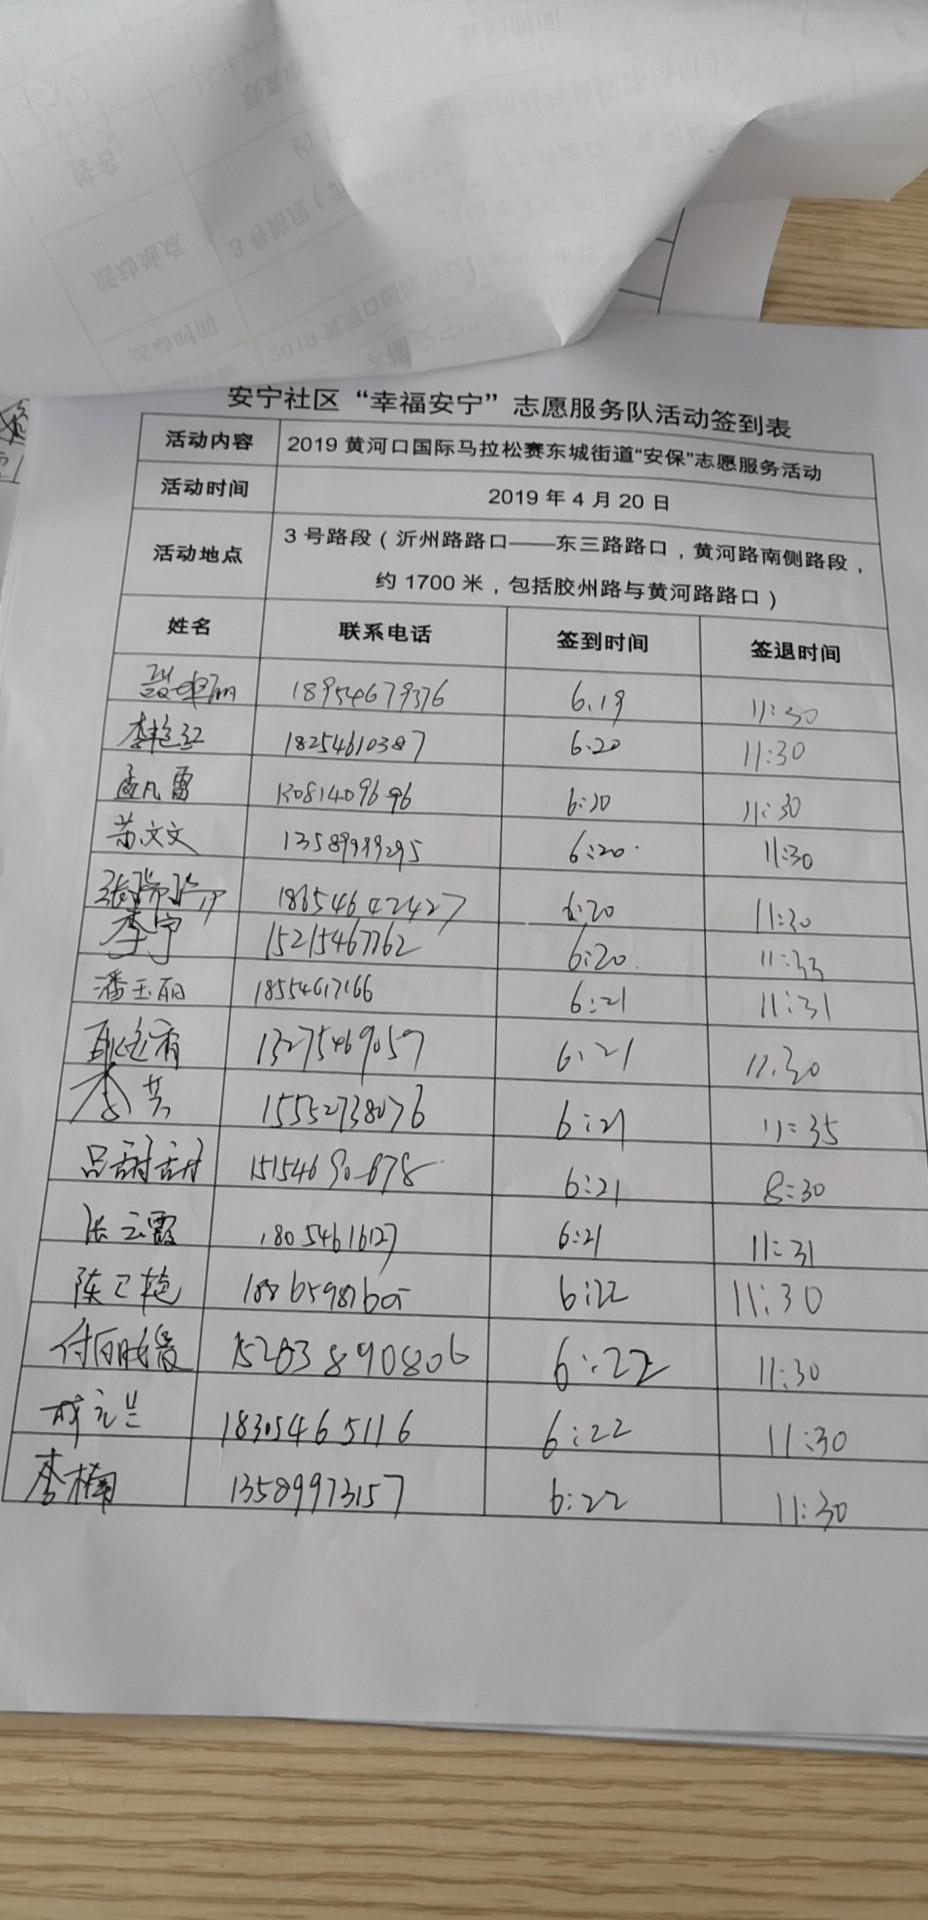 安宁社区“幸福安宁”志愿服务队活动签到表
活动内容 2019 黄河口国际马拉松赛东城街道“安保”志愿服务活动
活动时间 2019 年 4 月 20 日
活动地点 3 号路段（沂州路路口——东三路路口，黄河路南侧路段，
约 1700 米，包括胶州路与黄河路路口）
姓名 联系电话 签到时间 签退时间
18954679376 6.19 11:30
李艳红 18254610387 6:20 11:30
孟凡雷 13081409696 6:20 11:30
苏文文 13589999295 6:20 11:30
18654642427 6:20 11:30
李宁 15215467762 6:20 11:33
潘玉丽 18554617166 6:21 11:31
13275469059 6:21 11.30
李芸 15552738076 6:21 11:35
吕甜甜 15154690678 6:21 8:30
张云霞 18054616127 6:21 11:31
陈卫艳 18865981605 6:22 11:30
15263890806 6:22 11:30
成元兰 18305465116 6:22 11:30
李楠 13589973157 6:22 11:30